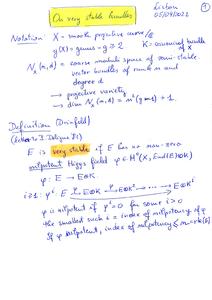 On very stable bundles
Lisbon
05/09/2022
1
Notation X - smooth projective curve/ℂ
g(X) = genus = g ≥ 2 K = canonical bundle of X
N_X(n,d) = coarse moduli space of semi-stable
vector bundles of rank n and
degree d
→ projective variety
→ dim N_X(n,d) = n²(g-1) + 1.
Definition (Drinfeld)
E is very stable if E has no non-zero
nilpotent Higgs field φ ∈ H⁰(X, End(E)⊗K)
φ: E → E⊗K
φ is nilpotent if φⁱ = 0 for some i > 0
the smallest such i = index of nilpotency of φ
If φ nilpotent, index of nilpotency ≤ n = rk(E)